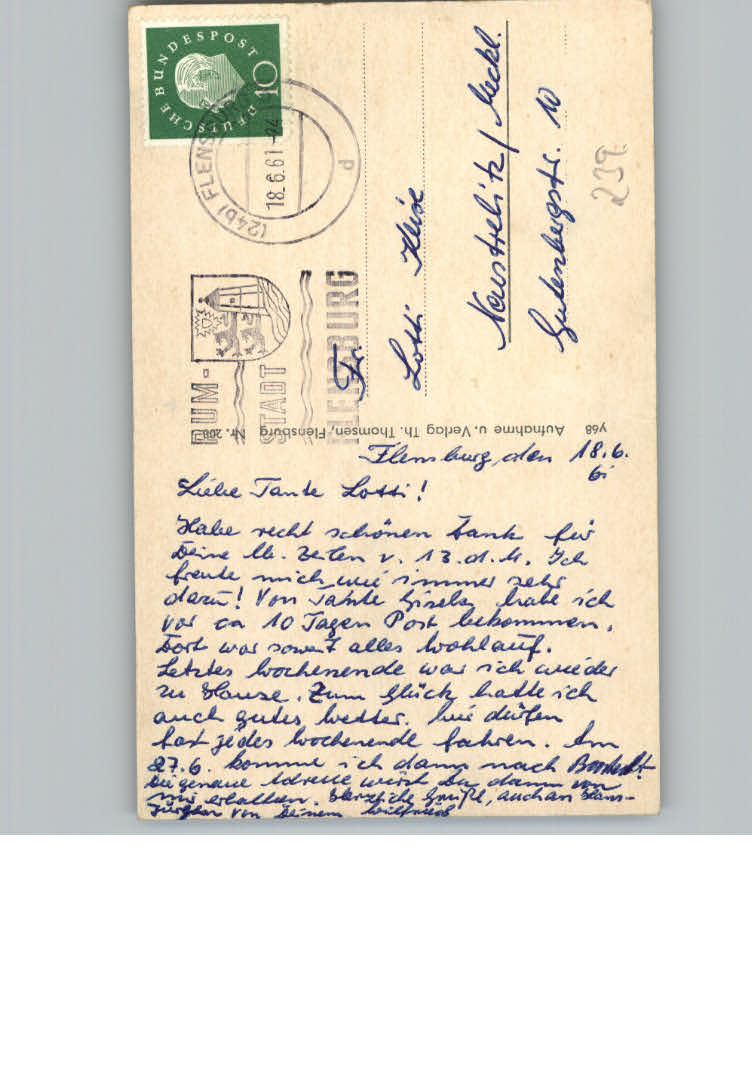 DEUTSCHE BUNDESPOST
10
(24b) FLENSBURG
18.6.61-24
d
RUM-
STADT
FLENSBURG
Fr.
Lotti
Neustrelitz / Meckl.
Gutenbergstr. 10
239
y68 Aufnahme u. Verlag Th. Thomsen, Flensburg Nr. 208
Flensburg, den 18.6.
61
Liebe Tante Lotti!
Habe recht schönen Dank für
Deine lb. Zeilen v. 13. d. M. Ich
freute mich wie immer sehr
dazu! Von Tante Gisela habe ich
vor ca 10 Tagen Post bekommen.
Dort war soweit alles wohlauf.
Letztes Wochenende war ich wieder
zu Hause. Zum Glück hatte ich
auch gutes Wetter. Wir dürfen
fast jedes Wochenende fahren. Am
27.6. komme ich dann nach
Die genaue Adresse wirst Du dann von
mir erhalten. Herzliche Grüße, auch an Hans-
Jürgen von Deinem Wilfried